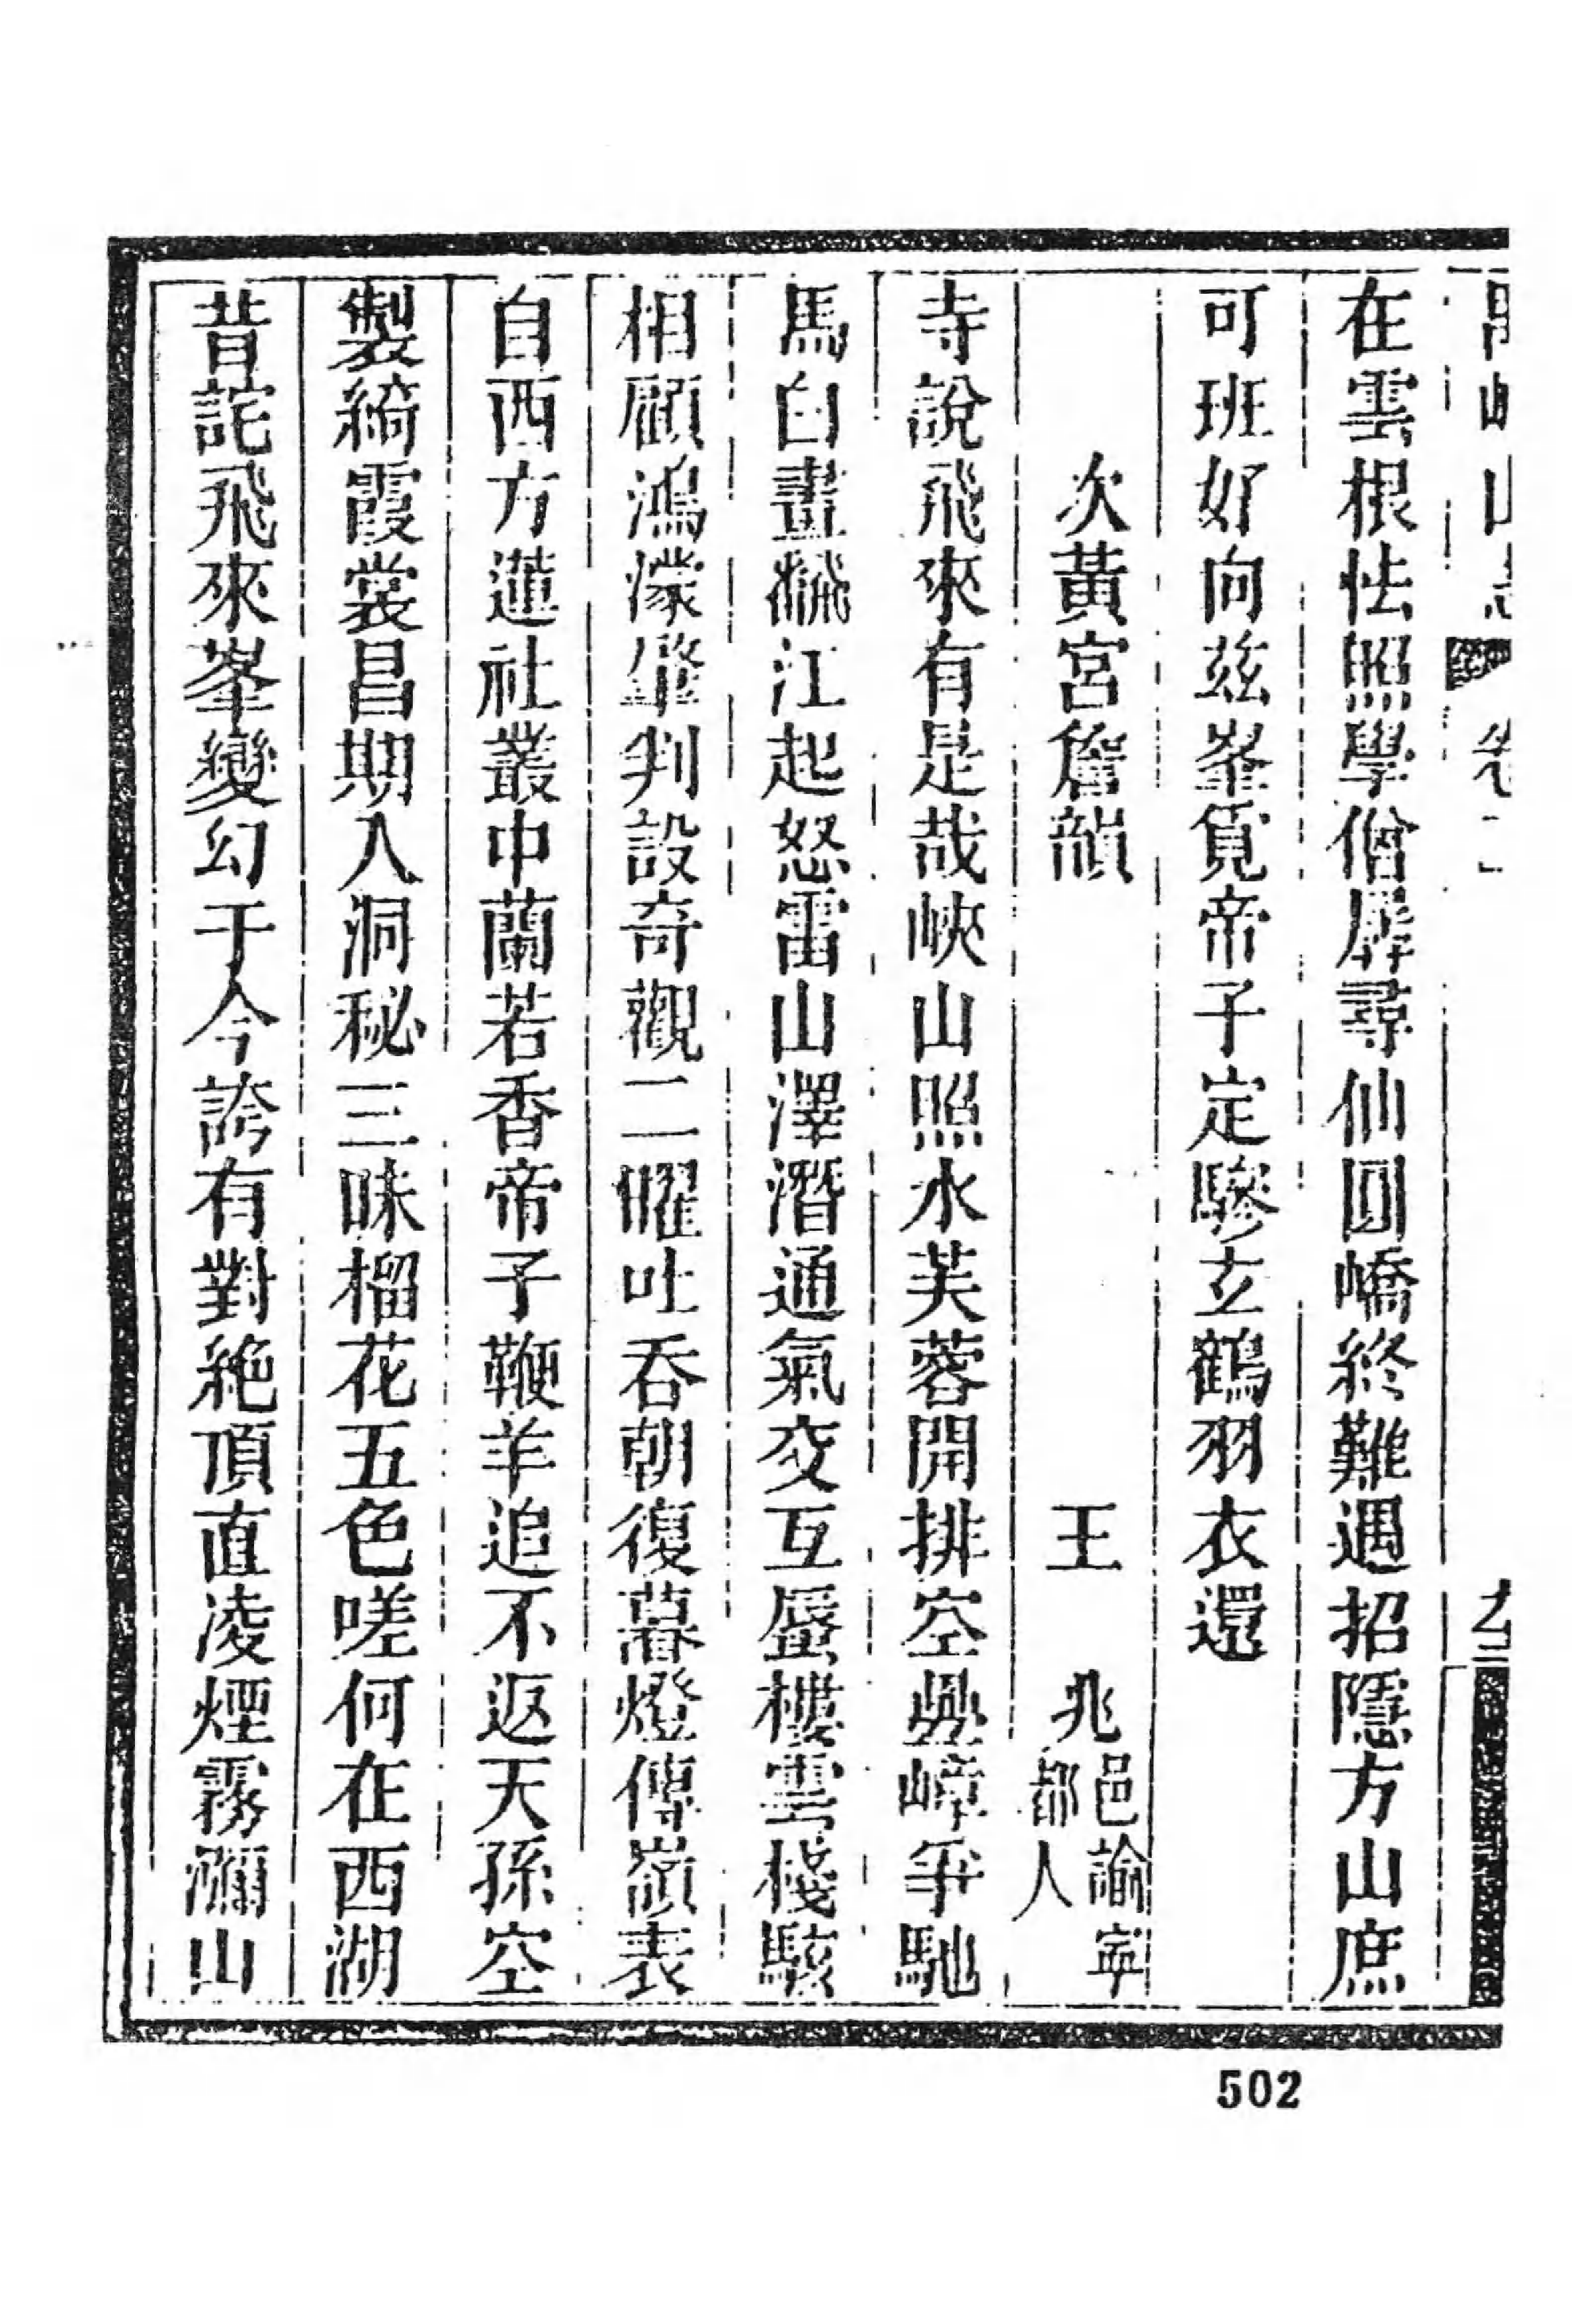 在雲根怯照學僧屏尋仙圓嶠終難遇招隱方山庶
可班好向茲峯覓帝子定驂玄鶴羽衣還
次黃宮詹韻 王 兆 邑諭寧都人
寺說飛來有是哉峽山照水芙蓉開排空疊嶂爭馳
馬白晝飜江起怒雷山澤潛通氣交互蜃樓雲棧駭
相顧鴻濛肇判設奇觀二曜吐吞朝復暮燈傳嶺表
自西方蓮社叢中蘭若香帝子鞭羊追不返天孫空
製綺霞裳昌期入洞秘三昧榴花五色嗟何在西湖
昔詫飛來峯變幻于今誇有對絶頂直凌煙霧瀰山
502